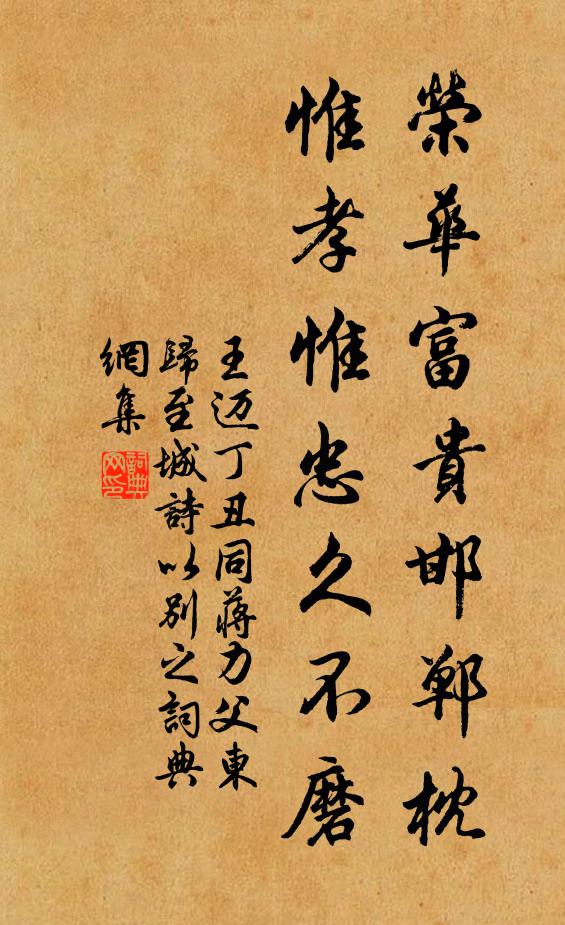 榮華富貴邯鄲枕
惟孝惟忠久不磨
王迈丁丑同蔣力父東
歸至城詩以別之詞典
網集
詞典
网印